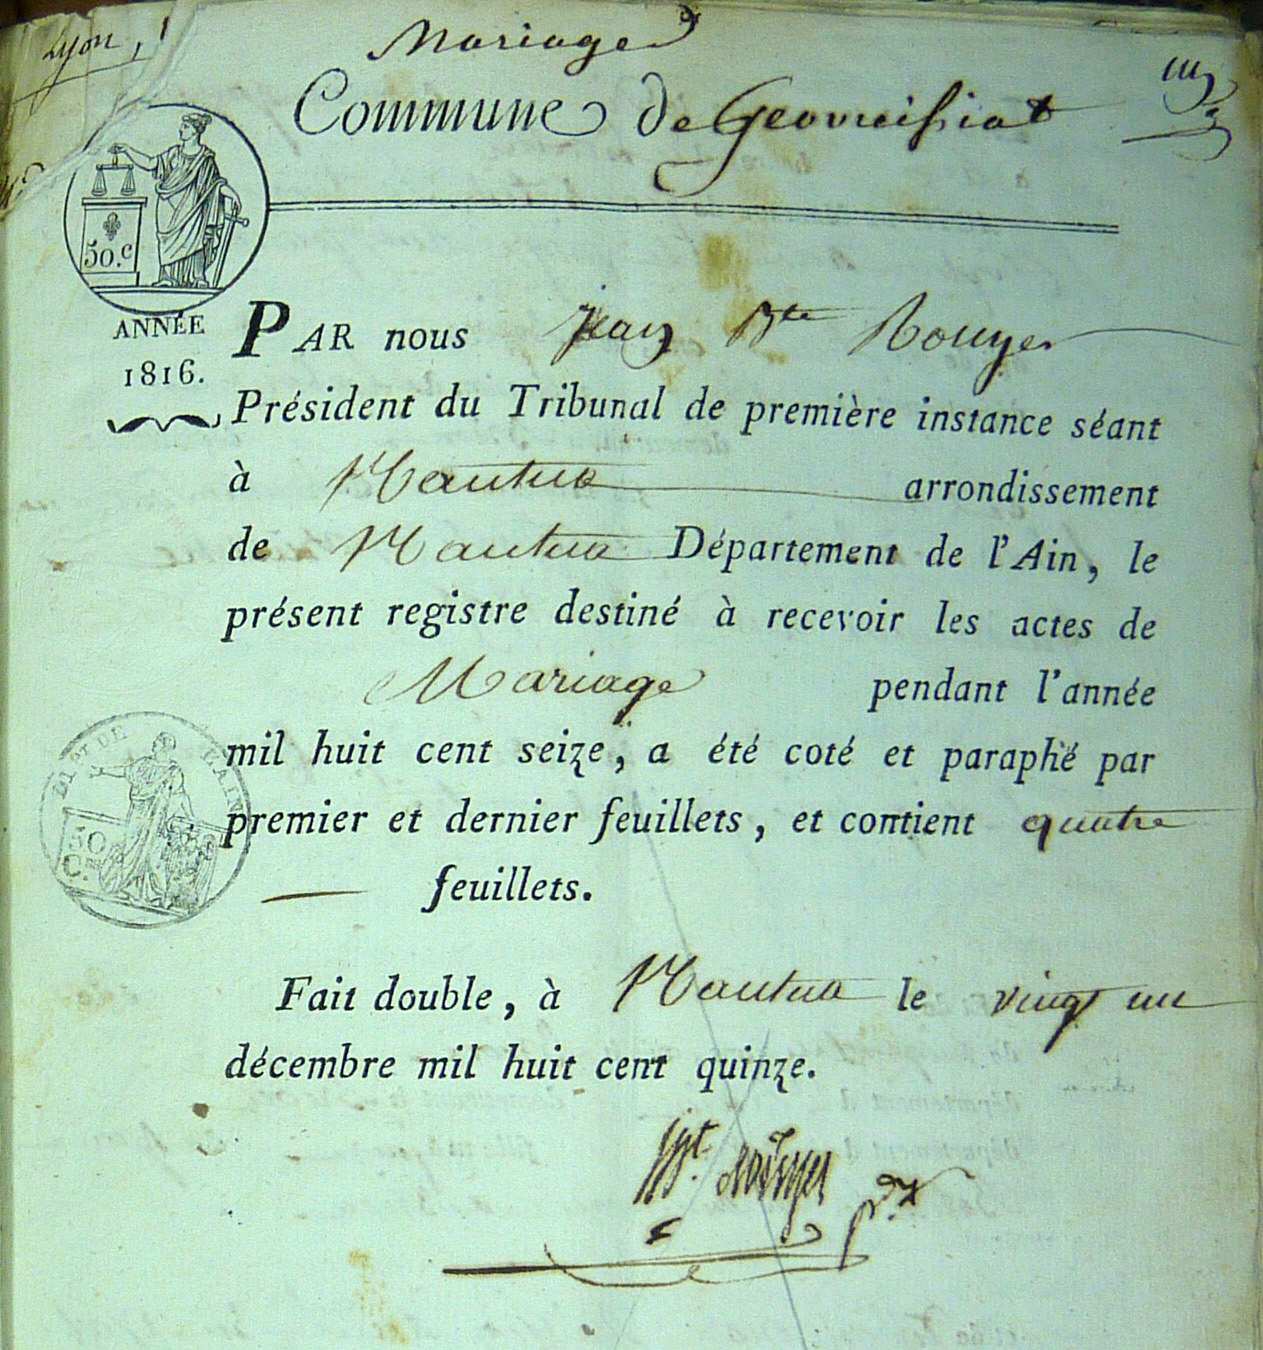 Lyon, 1
Mariage
Commune de Geovreissiat
50. c
ANNÉE
1816.
PAR nous Jean Bte Rouyer
Président du Tribunal de première instance séant
à Nantua arrondissement
de Nantua Département de l'Ain, le
présent registre destiné à recevoir les actes de
Mariage pendant l'année
mil huit cent seize, a été coté et paraphé par
premier et dernier feuillets, et contient quatre
feuillets.
DEPT DE L'AIN
50
C.
Fait double, à Nantua le vingt un
décembre mil huit cent quinze.
Bt. Rouyer